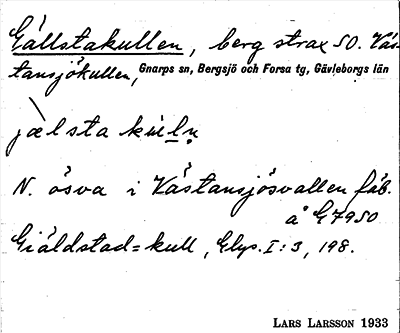 Gällstakullen, berg strax SO. Väs-
tansjökullen, Gnarps sn, Bergsjö och Forsa tg, Gävleborgs län
jælsta kùlṇ
N. ösva i Västansjösvallen fäb.
å G7950
Giäldstad=kull, Glys. I:3, 198.
LARS LARSSON 1933